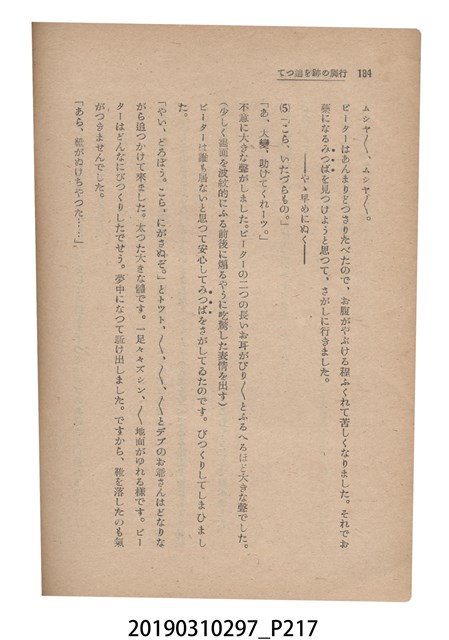 184 行脚の跡を追つて
ムシヤ〱、ムシヤ〱。
ピーターはあんまりどつさりたべたので、お腹がやぶける程ふくれて苦しくなりました。それでお
藥になるみつばを見つけようと思つて、さがしに行きました。
――やゝ早めにぬく――
⑤「こら、いたづらもの。」
「あ、大變、助けてくれーツ。」
不意に大きな聲がしました。ピーターの二つの長いお耳がびり〱とふるへるほど大きな聲でした。
(少しく畫面を波紋的にふる前後に煽るやうに吃驚した表情を出す)
ピーターは誰も居ないと思つて安心してみつばをさがしてゐたのです。びつくりしてしまひまし
た。
「やい、どろぼう。こら、にがさぬぞ。」とトツト、〱、〱、〱とデブのお爺さんはどなりな
がら追つかけて來ました。太つた大きな脚です。一足々々ズシン、〱地面がゆれる樣です。ピー
ターはどんなにびつくりしたでせう。夢中になつて駈け出しました。ですから、靴を落したのも氣
がつきませんでした。
「あら、靴がぬけちやつた……」
20190310297_P217